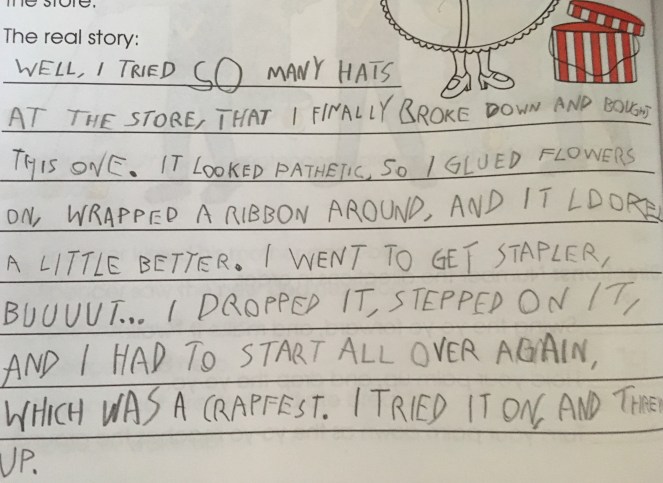 the store.
The real story:
WELL, I TRIED SO MANY HATS
AT THE STORE, THAT I FINALLY BROKE DOWN AND BOUGHT
THIS ONE. IT LOOKED PATHETIC, SO I GLUED FLOWERS
ON, WRAPPED A RIBBON AROUND, AND IT LOOKED
A LITTLE BETTER. I WENT TO GET STAPLER,
BUUUUT... I DROPPED IT, STEPPED ON IT,
AND I HAD TO START ALL OVER AGAIN,
WHICH WAS A CRAPFEST. I TRIED IT ON, AND THREW
UP.